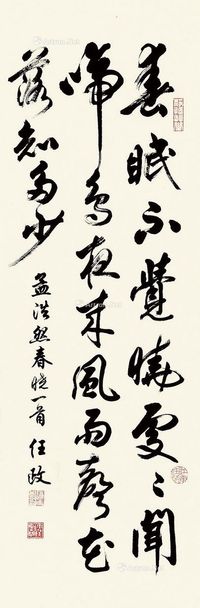 春眠不覺曉處〻聞
啼鳥夜来風雨聲花
落知多少
孟浩然春曉一首 任政